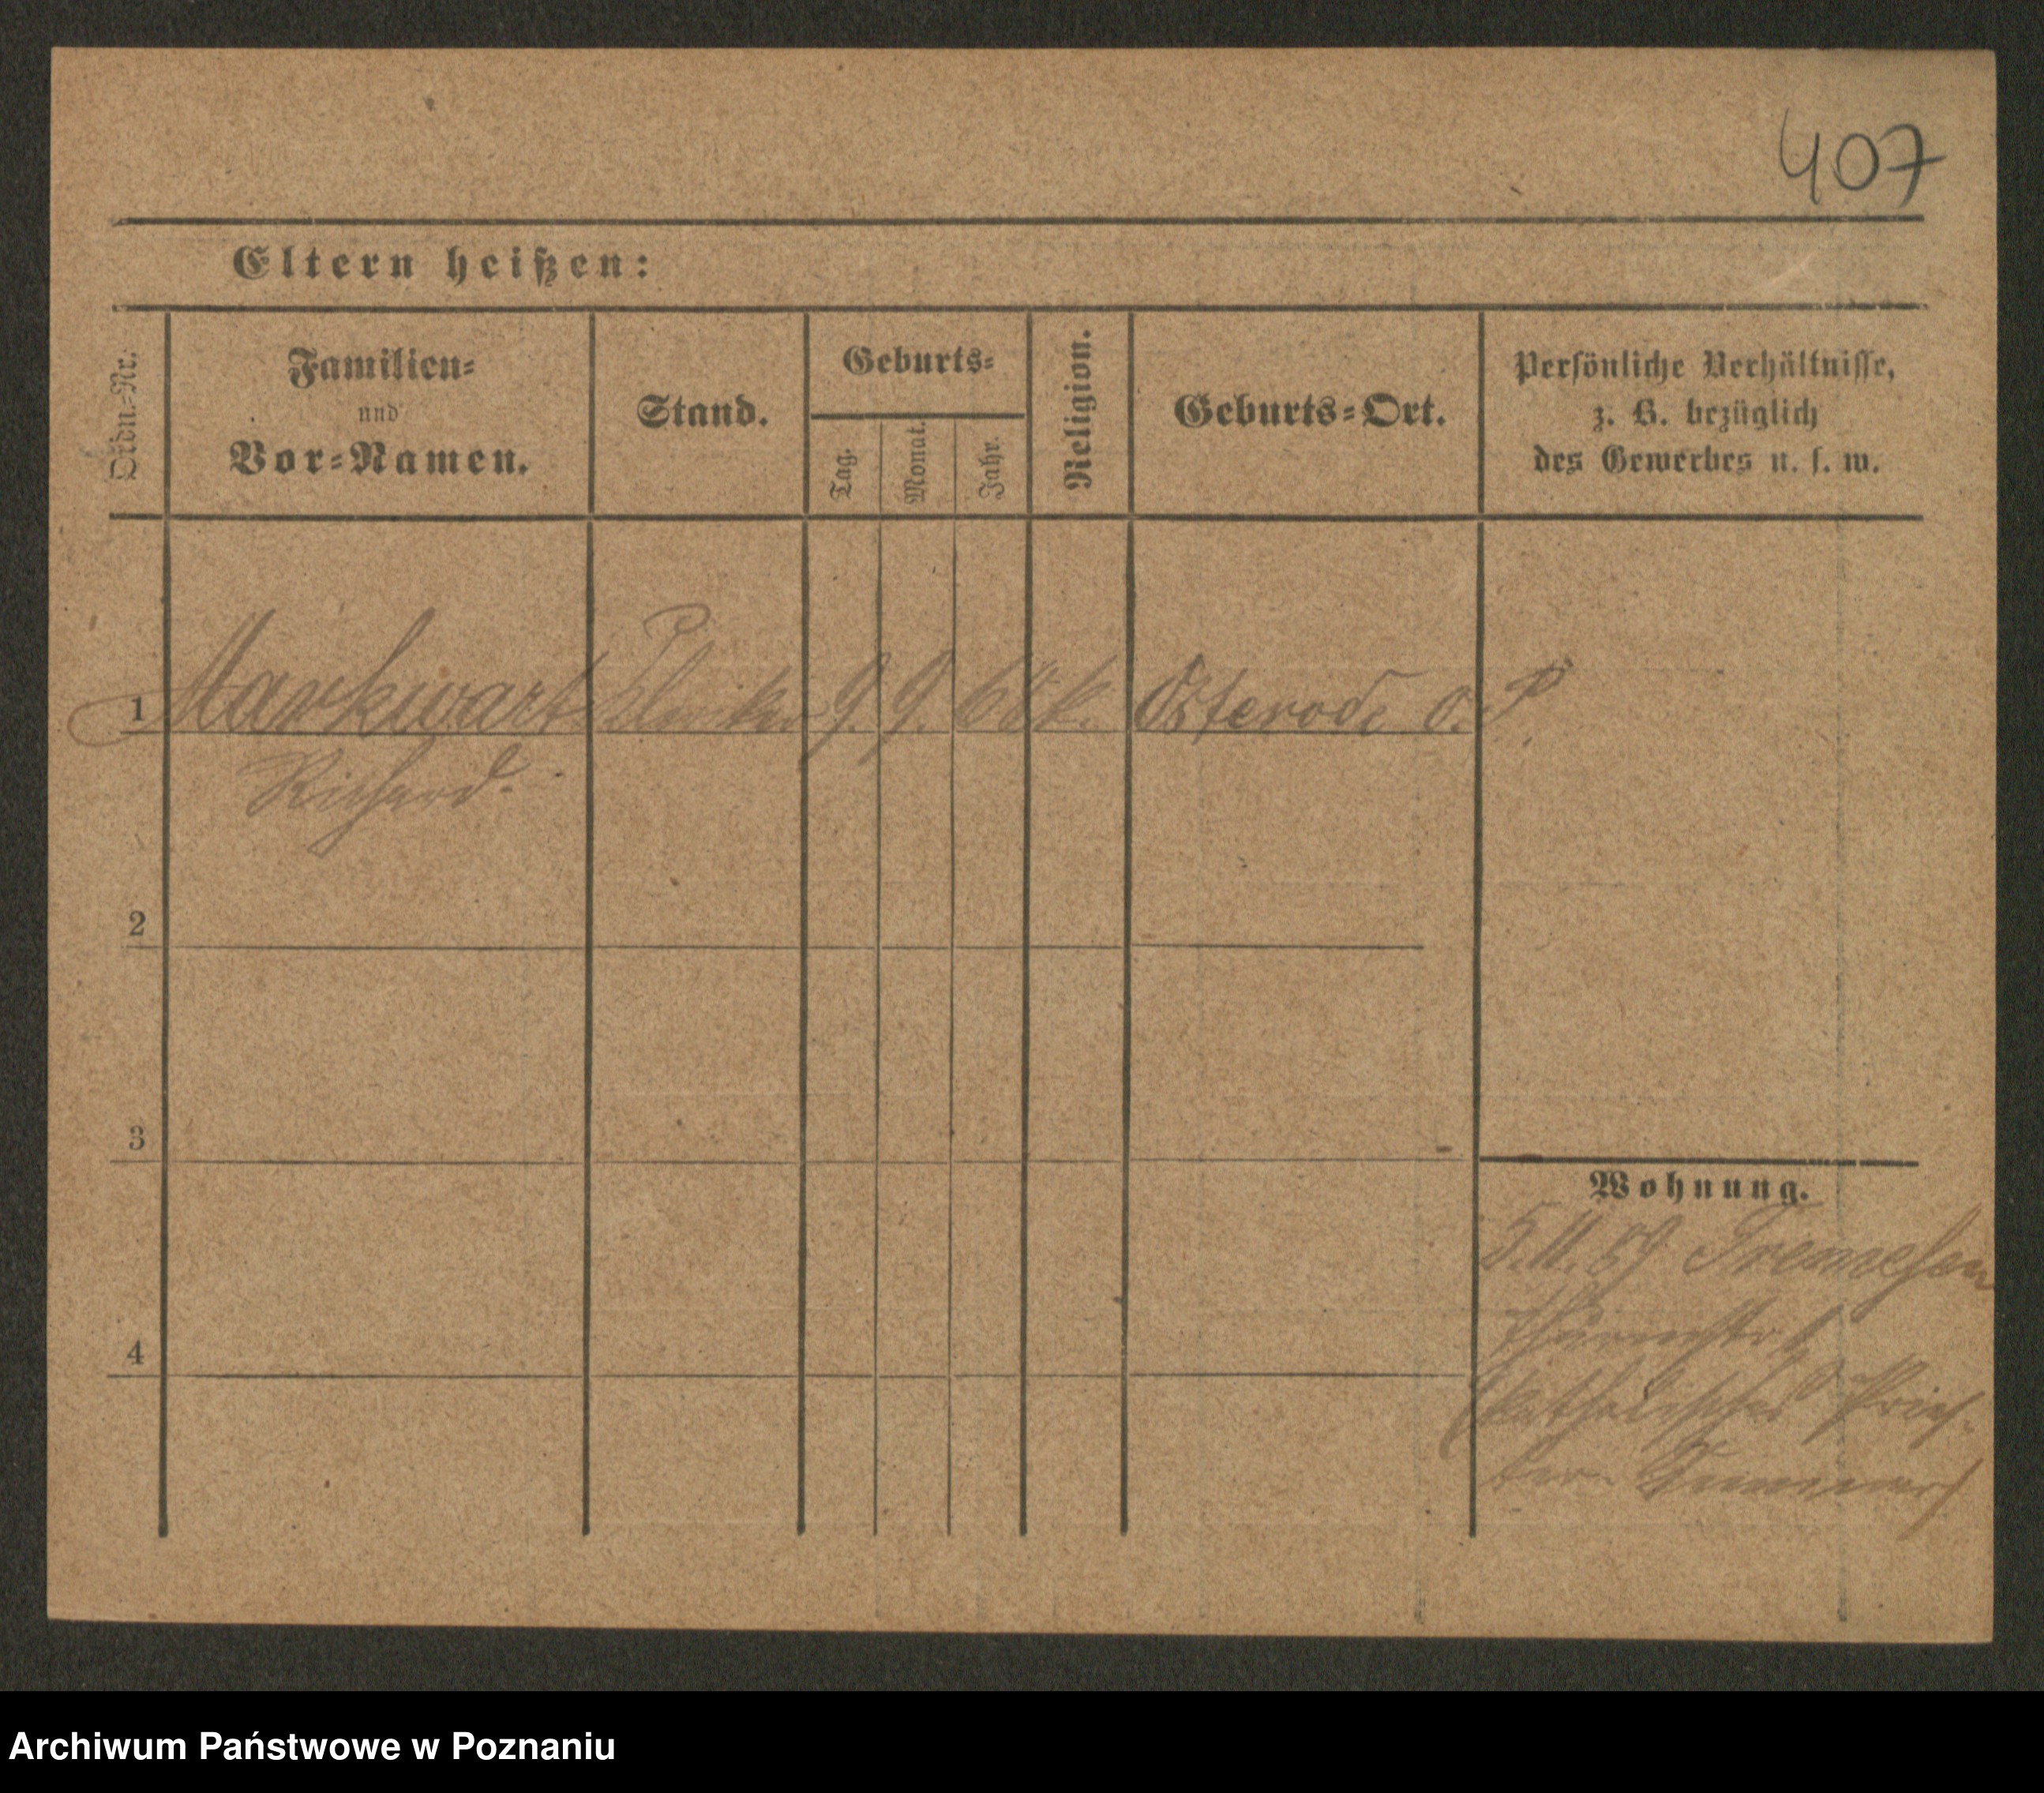 407
Eltern heißen:
Ordn.-Nr.
Familien-
und
Vor-Namen.
Stand.
Geburts-
Tag.
Monat.
Jahr.
Religion.
Geburts-Ort.
Persönliche Verhältnisse,
z. B. bezüglich
des Gewerbes u. s. w.
1 Markwart 9. 9. 68 k. Osterode O. P.
Richard
2
3
Wohnung.
5.11.89 Tremessen
4
Archiwum Państwowe w Poznaniu